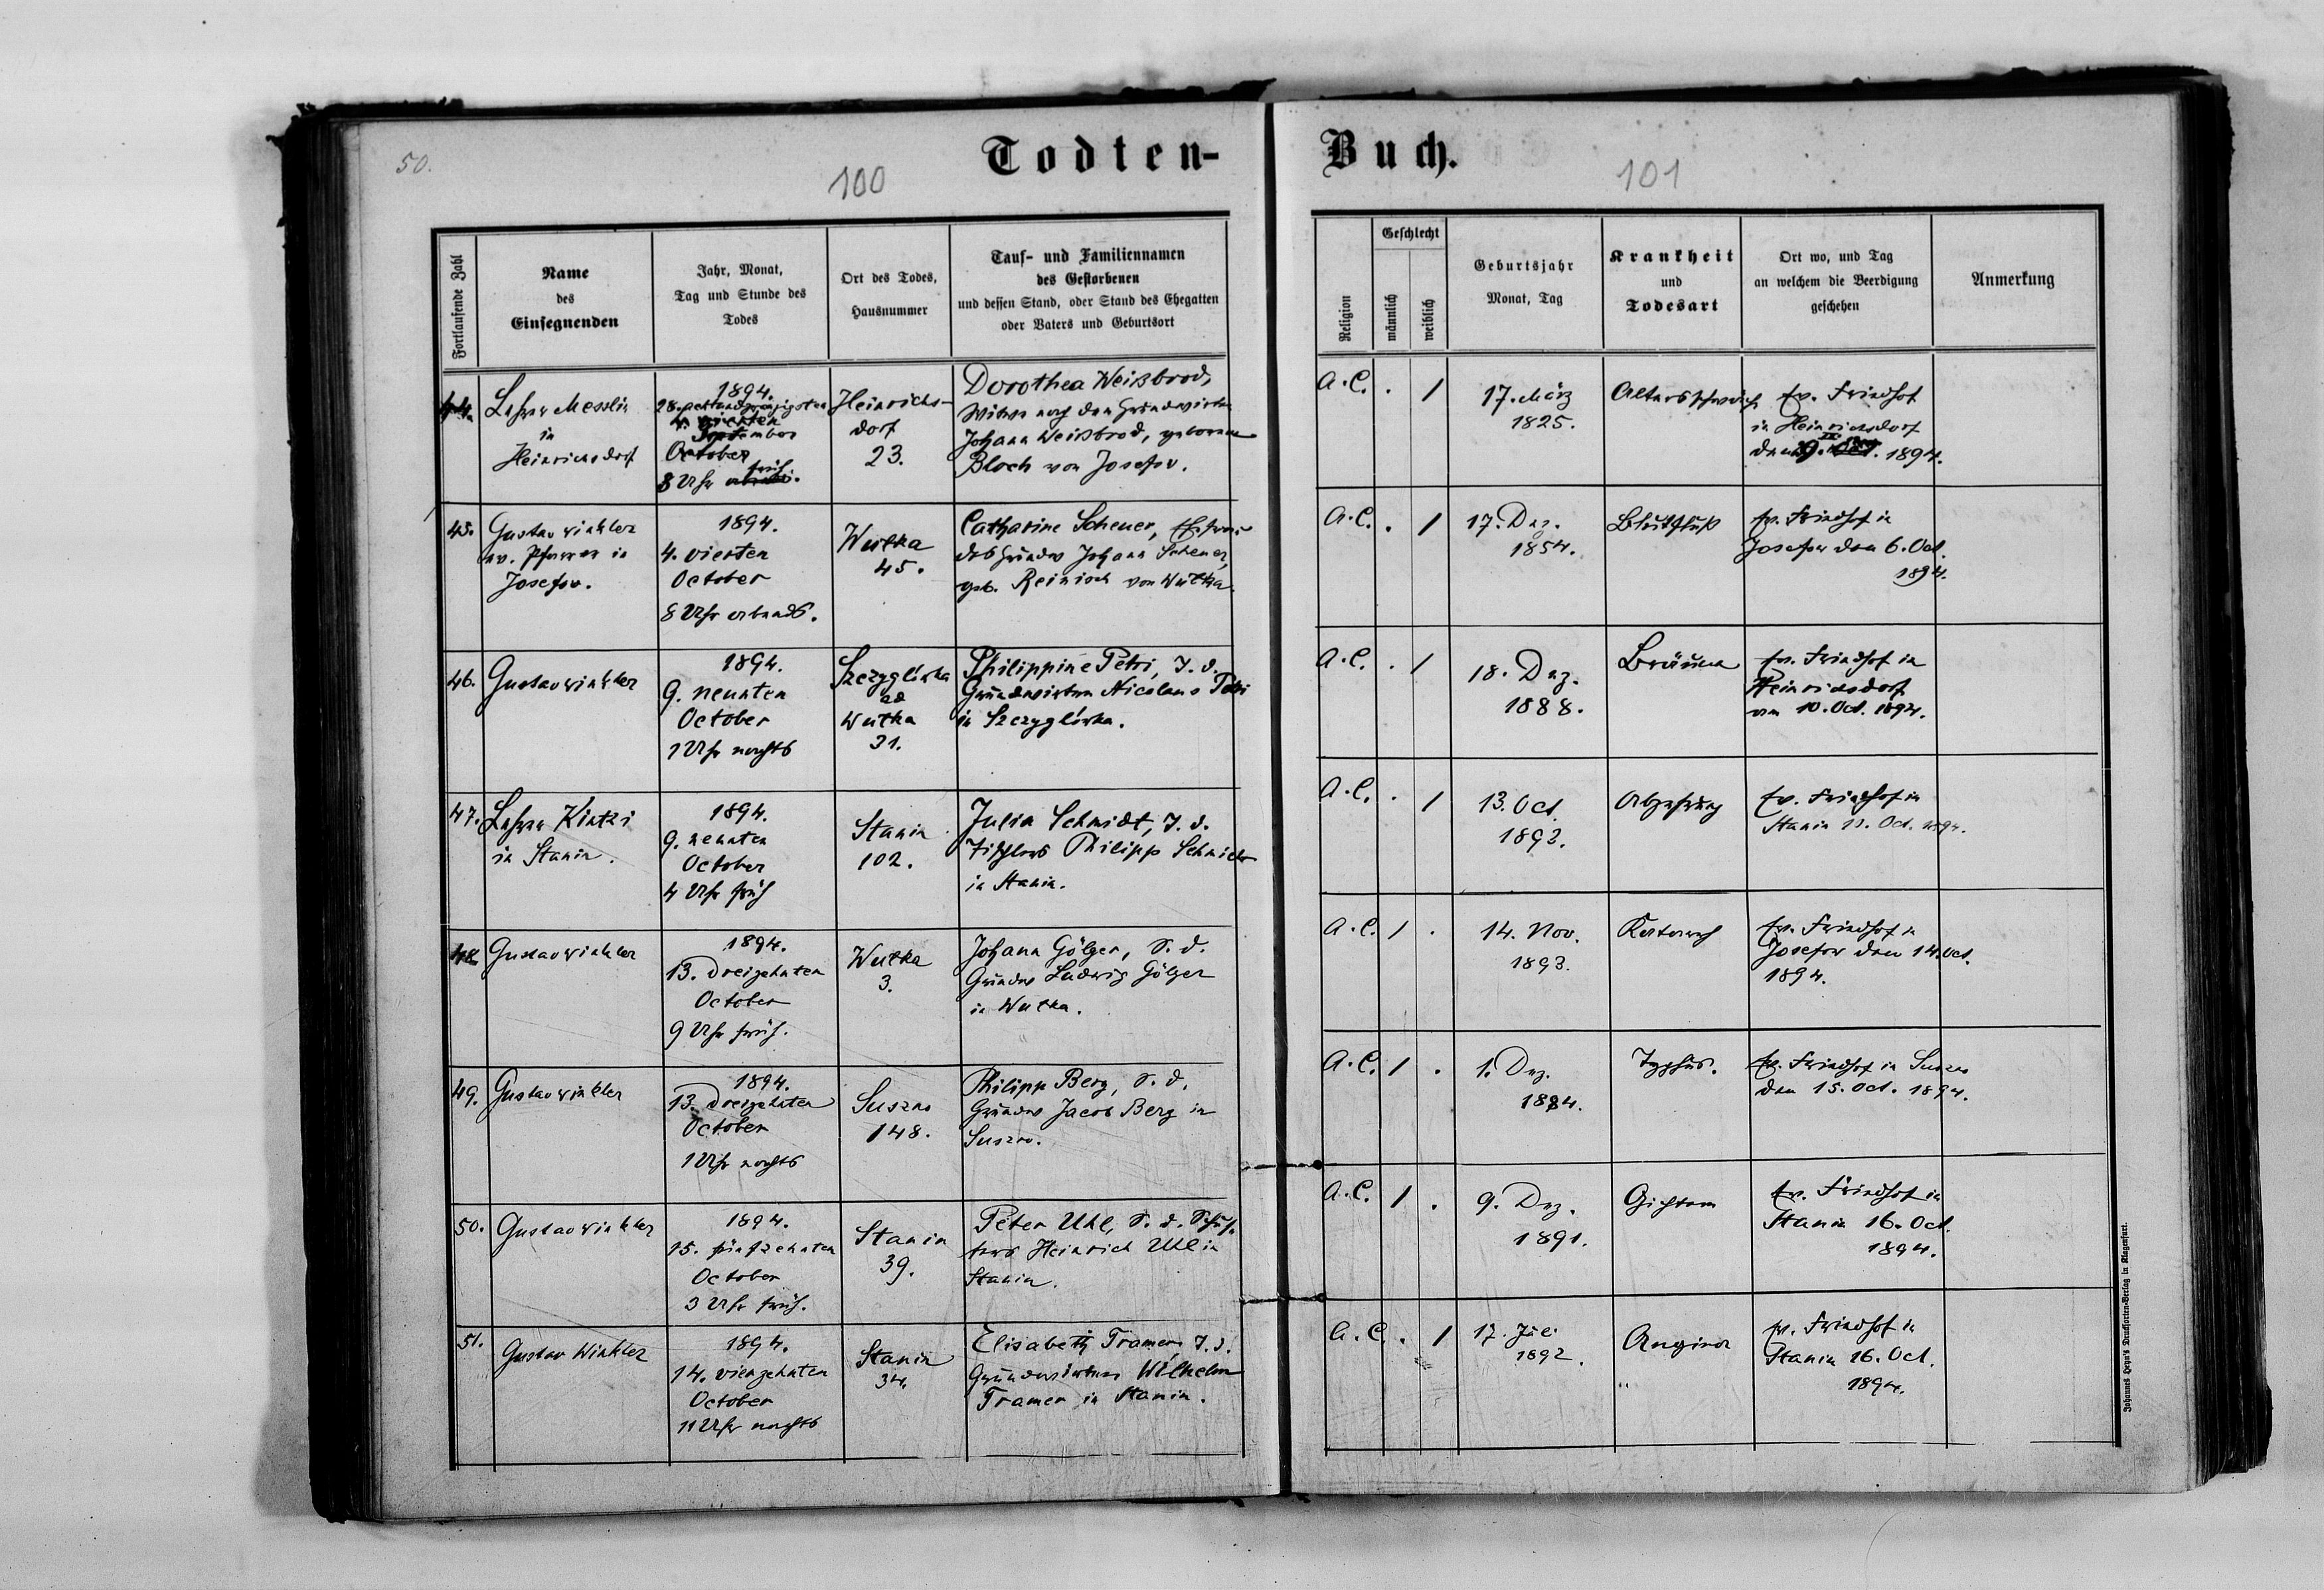 50.
100
Todten-
Fortlaufende Zahl
Name
des
Einsegnenden
Jahr, Monat,
Tag und Stunde des
Todes
Ort des Todes,
Hausnummer
Tauf- und Familiennamen
des Gestorbenen
und dessen Stand, oder Stand des Ehegatten
oder Vaters und Geburtsort
44.
Lehrer Messlin
in
Heinrichsdorf
1894.
28. achtundzwanzigsten
4. vierten
September
October
8 Uhr früh
Heinrichs-
dorf
23.
Dorothea Weißbrod,
Witwe nach dem Grundwirten
Johann Weißbrod, geborene
Bloch von Josefow.
45.
Gustav Winkler
ev. Pfarrer in
Josefow.
1894.
4. vierten
October
8 Uhr abends.
Wutka
45.
Catharine Scheuer, Ehefrau
des Grundw Johann Scheuer,
geb. Reinisch von Wutka.
46.
Gustav Winkler
1894.
9. neunten
October
1 Uhr nachts
Szczyglówka
ad
Wutka
31.
Philippine Petri, T. d.
Grundwirten Nicolaus Petri
in Szczyglówka.
47.
Lehrer Kintzi
in Stanin.
1894.
9. neunten
October
4 Uhr früh
Stanin
102.
Julia Schmidt, T. d.
Tischlers Philipp Schmidt
in Stanin.
48
Gustav Winkler
1894.
13. dreizehnten
October
9 Uhr früh.
Wutka
3.
Johann Gölger, S. d.
Grundw Ludwig Gölger
in Wutka.
49.
Gustav Winkler
1894.
13. dreizehnten
October
1 Uhr nachts
Suszno
148.
Philipp Berg, S. d.
Grundw Jacob Berg in
Suszno.
50.
Gustav Winkler
1894.
15. fünfzehnten
October
3 Uhr früh.
Stanin
39.
Peter Uhl, S. d. Schuh-
Heinrich Uhl in
Stanin.
51.
Gustav Winkler
1894.
14. vierzehnten
October
11 Uhr nachts
Stanin
34.
Elisabeth Tramer, T. d.
Grundwirten Wilhelm
Tramer in Stanin.
Buch.
101
Religion
Geschlecht
männlich
weiblich
Geburtsjahr
Monat, Tag
Krankheit
und
Todesart
Ort wo, und Tag
an welchem die Beerdigung
geschehen
Anmerkung
A. C. . 1
17. März
1825.
Altersschwäche
ev. Friedhof
in Heinrichsdorf
den 1894.
A. C. . 1
17. Dez.
1854.
Blutfluß
ev. Friedhof in
Josefow den 6. Oct.
1894.
A. C. . 1
18. Dez.
1888.
Bräune
ev. Friedhof in
Heinrichsdorf
am 10. Oct. 1894.
A. C. . 1
13. Oct.
1893.
Abzehrung
ev. Friedhof in
Stanin 11. Oct. 1894.
A. C. 1 .
14. Nov.
1893.
Katarrh
ev. Friedhof in
Josefow den 14. Oct.
1894.
A. C. 1 .
1. Dez.
1884.
Typhus.
ev. Friedhof in Suszno
den 15. Oct. 1894.
A. C. 1 .
9. Dez.
1891.
Gichtern
ev. Friedhof in
Stanin 16. Oct.
1894.
A. C. . 1
17. Juli
1892.
Angina
ev. Friedhof in
Stanin 16. Oct.
1894.
Johannes Heyn's Drucksorten-Verlag in Klagenfurt.